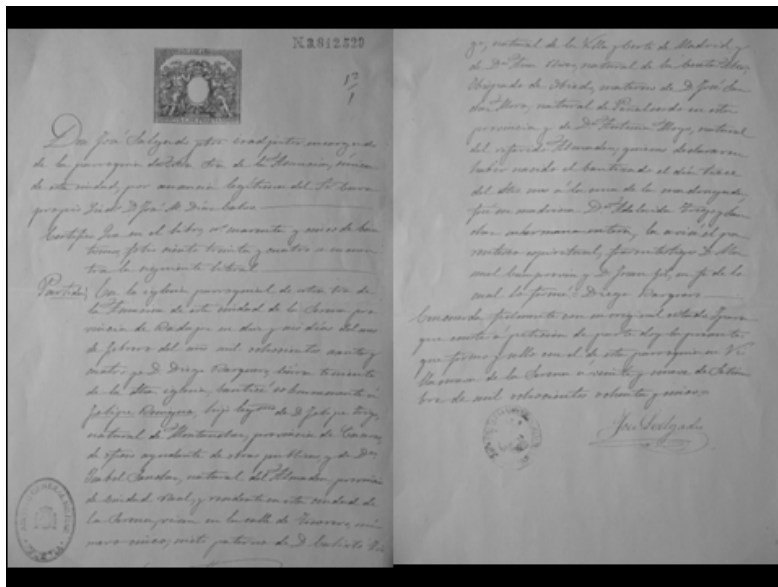 N.3.842.520
1ª
1
Don José Salgado pbro. coadjutor encargado
de la parroquia de Ntra Sra de la Asunción, única
de esta ciudad, por ausencia legítima del Sr Cura
propio Licdo D José M. Díaz
Certifico: Que en el libro nº cuarenta y cinco de bau-
tismos, folio ciento treinta y cuatro se encuen-
tra la siguiente literal
Partida: En la iglesia parroquial de Ntra Sra de
la Asunción de esta ciudad de la Serena pro-
vincia de Badajoz en diez y seis días del mes
de febrero del año mil ochocientos
cuatro yo D. Diego Vargas, teniente
de la dha iglesia, bauticé solemnemente a
Felipe hijo legmo de D Felipe Trigo,
natural de Montanchez, provincia de Cáceres,
de oficio ayudante de obras públicas y de Dña
Isabel Sanchez, natural del Almaden, provincia
de Ciudad Real, y residente en esta ciudad de
la Serena, viven en la calle de núm
mero cinco, nieto paterno de D.
go, natural de la Villa y Corte de Madrid, y
de Dª natural de
Obispado de materno de D. José San
natural de en esta
provincia y de Dª Antonia natural
del referido Almaden; quienes declararon
haber nacido el bautizado el día trece
del dho mes á la una de la madrugada,
fué su madrina Dª Adelaida Trigo y San
chez su hermana entera, la avisé el pa-
rentesco espiritual, fueron testigos D. Ma-
nuel y D. Juan Gil, en fe de lo
cual lo firmé: Diego Vargas
Concuerda fielmente con su original
que remito á petición de parte doy la presente
que firmo y sello con el de esta parroquia en Vi-
llanueva de la Serena á veinte y nueve de Setiem-
bre de mil ochocientos ochenta y cinco
José Salgado